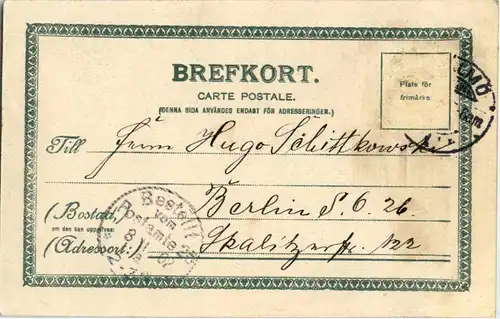 BREFKORT.
CARTE POSTALE.
(DENNA SIDA ANVÄNDES ENDAST FÖR ADRESSERINGEN.)
Plats för
frimärke
LMÖ
Till Herrn Hugo Schittkowski
Berlin S. O. 26.
(Bostad,
om den kan uppgifvas)
(Adressort:) Skalitzerstr. 122
Bestellt
vom
Postamte
8 02